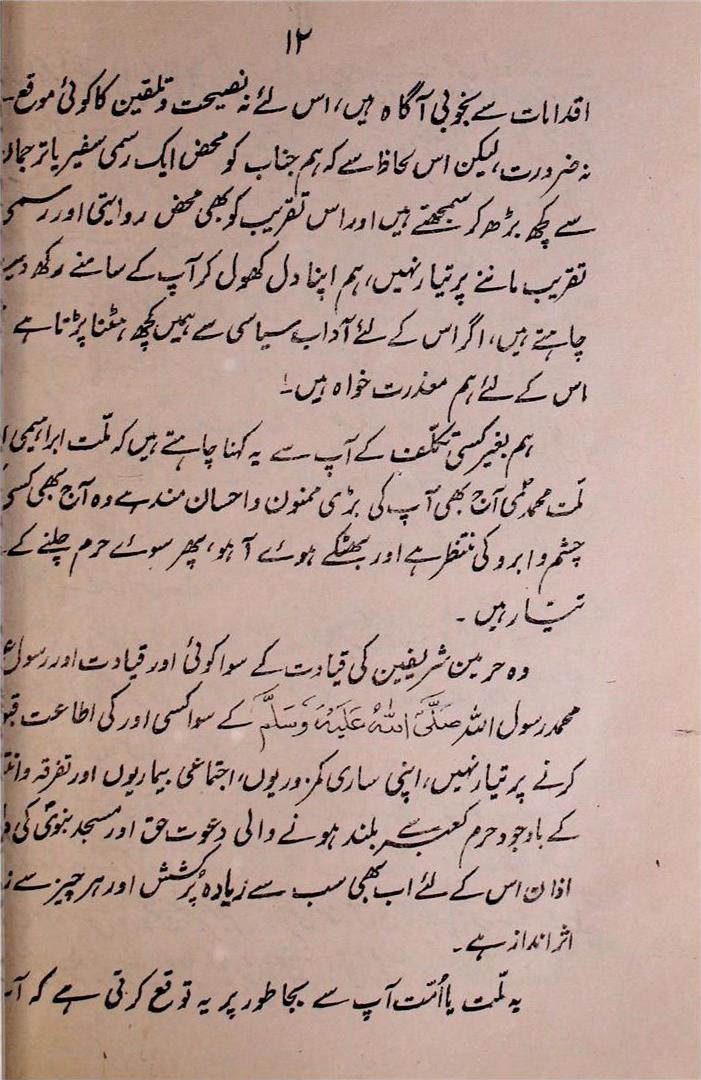 ۱۲
اقدامات سے بخوبی آگاہ ہیں، اس لئے نہ نصیحت و تلقین کا کوئی موقع
نہ ضرورت، لیکن اس لحاظ سے کہ ہم جناب کو محض ایک رسمی سفیر یا
سے کچھ بڑھ کر سمجھتے ہیں اور اس تقریب کو بھی محض روایتی اور رسمی
تقریب ماننے پر تیار نہیں، ہم اپنا دل کھول کر آپ کے سامنے رکھ
چاہتے ہیں، اگر اس کے لئے آداب سیاسی سے ہمیں کچھ ہٹنا پڑتا ہے
اس کے لئے ہم معذرت خواہ ہیں۔!
ہم بغیر کسی تکلّف کے آپ سے یہ کہنا چاہتے ہیں کہ ملّت ابراہیمی
ملّت محمدؐی آج بھی آپ کی بڑی ممنون و احسان مند ہے وہ آج بھی کسی
چشم و ابرو کی منتظر ہے اور بھٹکے ہوئے آہو، پھر سوئے حرم چلنے کے
تیّار ہیں۔
وہ حرمین شریفین کی قیادت کے سوا کوئی اور قیادت اور رسول
محمد رسول اللہ صَلَّی اللہُ عَلَیْہِ وَسَلَّم کے سوا کسی اور کی اطاعت
کرنے پر تیار نہیں، اپنی ساری کمزوریوں، اجتماعی بیماریوں اور تفرقہ
کے باوجود حرم کعبہ سے بلند ہونے والی دعوت حق اور مسجد نبویؐ کی
اذان اس کے لئے اب بھی سب سے زیادہ پُرکشش اور ہر چیز سے
اثر انداز ہے۔
یہ ملّت یا اُمّت آپ سے بجا طور پر یہ توقع کرتی ہے کہ